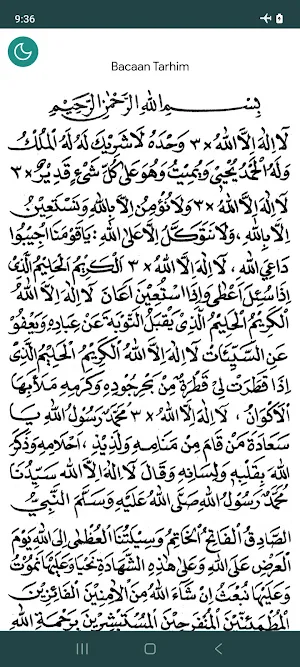 9:36
Bacaan Tarhim
بِسْمِ اللهِ الرَّحْمٰنِ الرَّحِيْمِ
لَا اِلٰهَ اِلَّا اللهُ ×٣ وَحْدَهُ لَا شَرِيْكَ لَهُ لَهُ الْمُلْكُ
وَلَهُ الْحَمْدُ يُحْيِيْ وَيُمِيْتُ وَهُوَ عَلٰى كُلِّ شَيْءٍ قَدِيْرٌ ×٣
لَا اِلٰهَ اِلَّا اللهُ ×٣ وَلَا نُؤْمِنُ اِلَّا بِاللهِ وَنَسْتَعِيْنُ
اِلَّا بِاللهِ ، وَلَا نَتَوَكَّلُ اِلَّا عَلَى اللهِ : يَا قَوْمَنَا اَجِيْبُوْا
دَاعِيَ اللهِ ، لَا اِلٰهَ اِلَّا اللهُ ×٣ اَلْكَرِيْمُ الْحَلِيْمُ الَّذِيْ
اِذَا سُئِلَ اَعْطٰى وَاِذَا اسْتُعِيْنَ اَعَانَ لَا اِلٰهَ اِلَّا اللهُ
الْكَرِيْمُ الْحَلِيْمُ الَّذِيْ يَقْبَلُ التَّوْبَةَ عَنْ عِبَادِهِ وَيَعْفُوْ
عَنِ السَّيِّئَاتِ لَا اِلٰهَ اِلَّا اللهُ الْكَرِيْمُ الْحَلِيْمُ الَّذِيْ
اِذَا قَطَرَتْ لِيْ قَطْرَةٌ مِنْ بَحْرِ جُوْدِهِ وَكَرَمِهِ مَلَأَ بِهَا
الْاَكْوَانُ ، لَا اِلٰهَ اِلَّا اللهُ ×٣ مُحَمَّدٌ رَسُوْلُ اللهِ يَا
سَعَادَةَ مَنْ قَامَ مِنْ مَنَامِهِ وَلَذِيْذِ ، اَحْلَامِهِ وَذَكَرَ
اللهَ بِقَلْبِهِ وَلِسَانِهِ وَقَالَ لَا اِلٰهَ اِلَّا اللهُ سَيِّدُنَا
مُحَمَّدٌ رَسُوْلُ اللهِ صَلَّى اللهُ عَلَيْهِ وَسَلَّمَ النَّبِيُّ
الصَّادِقُ الْفَاتِحُ الْخَاتِمُ وَسِيْلَتُنَا الْعُظْمٰى اِلَى اللهِ يَوْمَ
الْعَرْضِ عَلَى اللهِ وَعَلٰى هٰذِهِ الشَّهَادَةِ نَحْيَا وَعَلَيْهَا نَمُوْتُ
وَعَلَيْهَا نُبْعَثُ اِنْ شَاءَ اللهُ مِنَ الْاٰمِنِيْنَ الْفَائِزِيْنَ
الْمُطْمَئِنِّيْنَ الْمُتَفَرِّحِيْنَ الْمُسْتَبْشِرِيْنَ بِرَحْمَةِ اللهِ